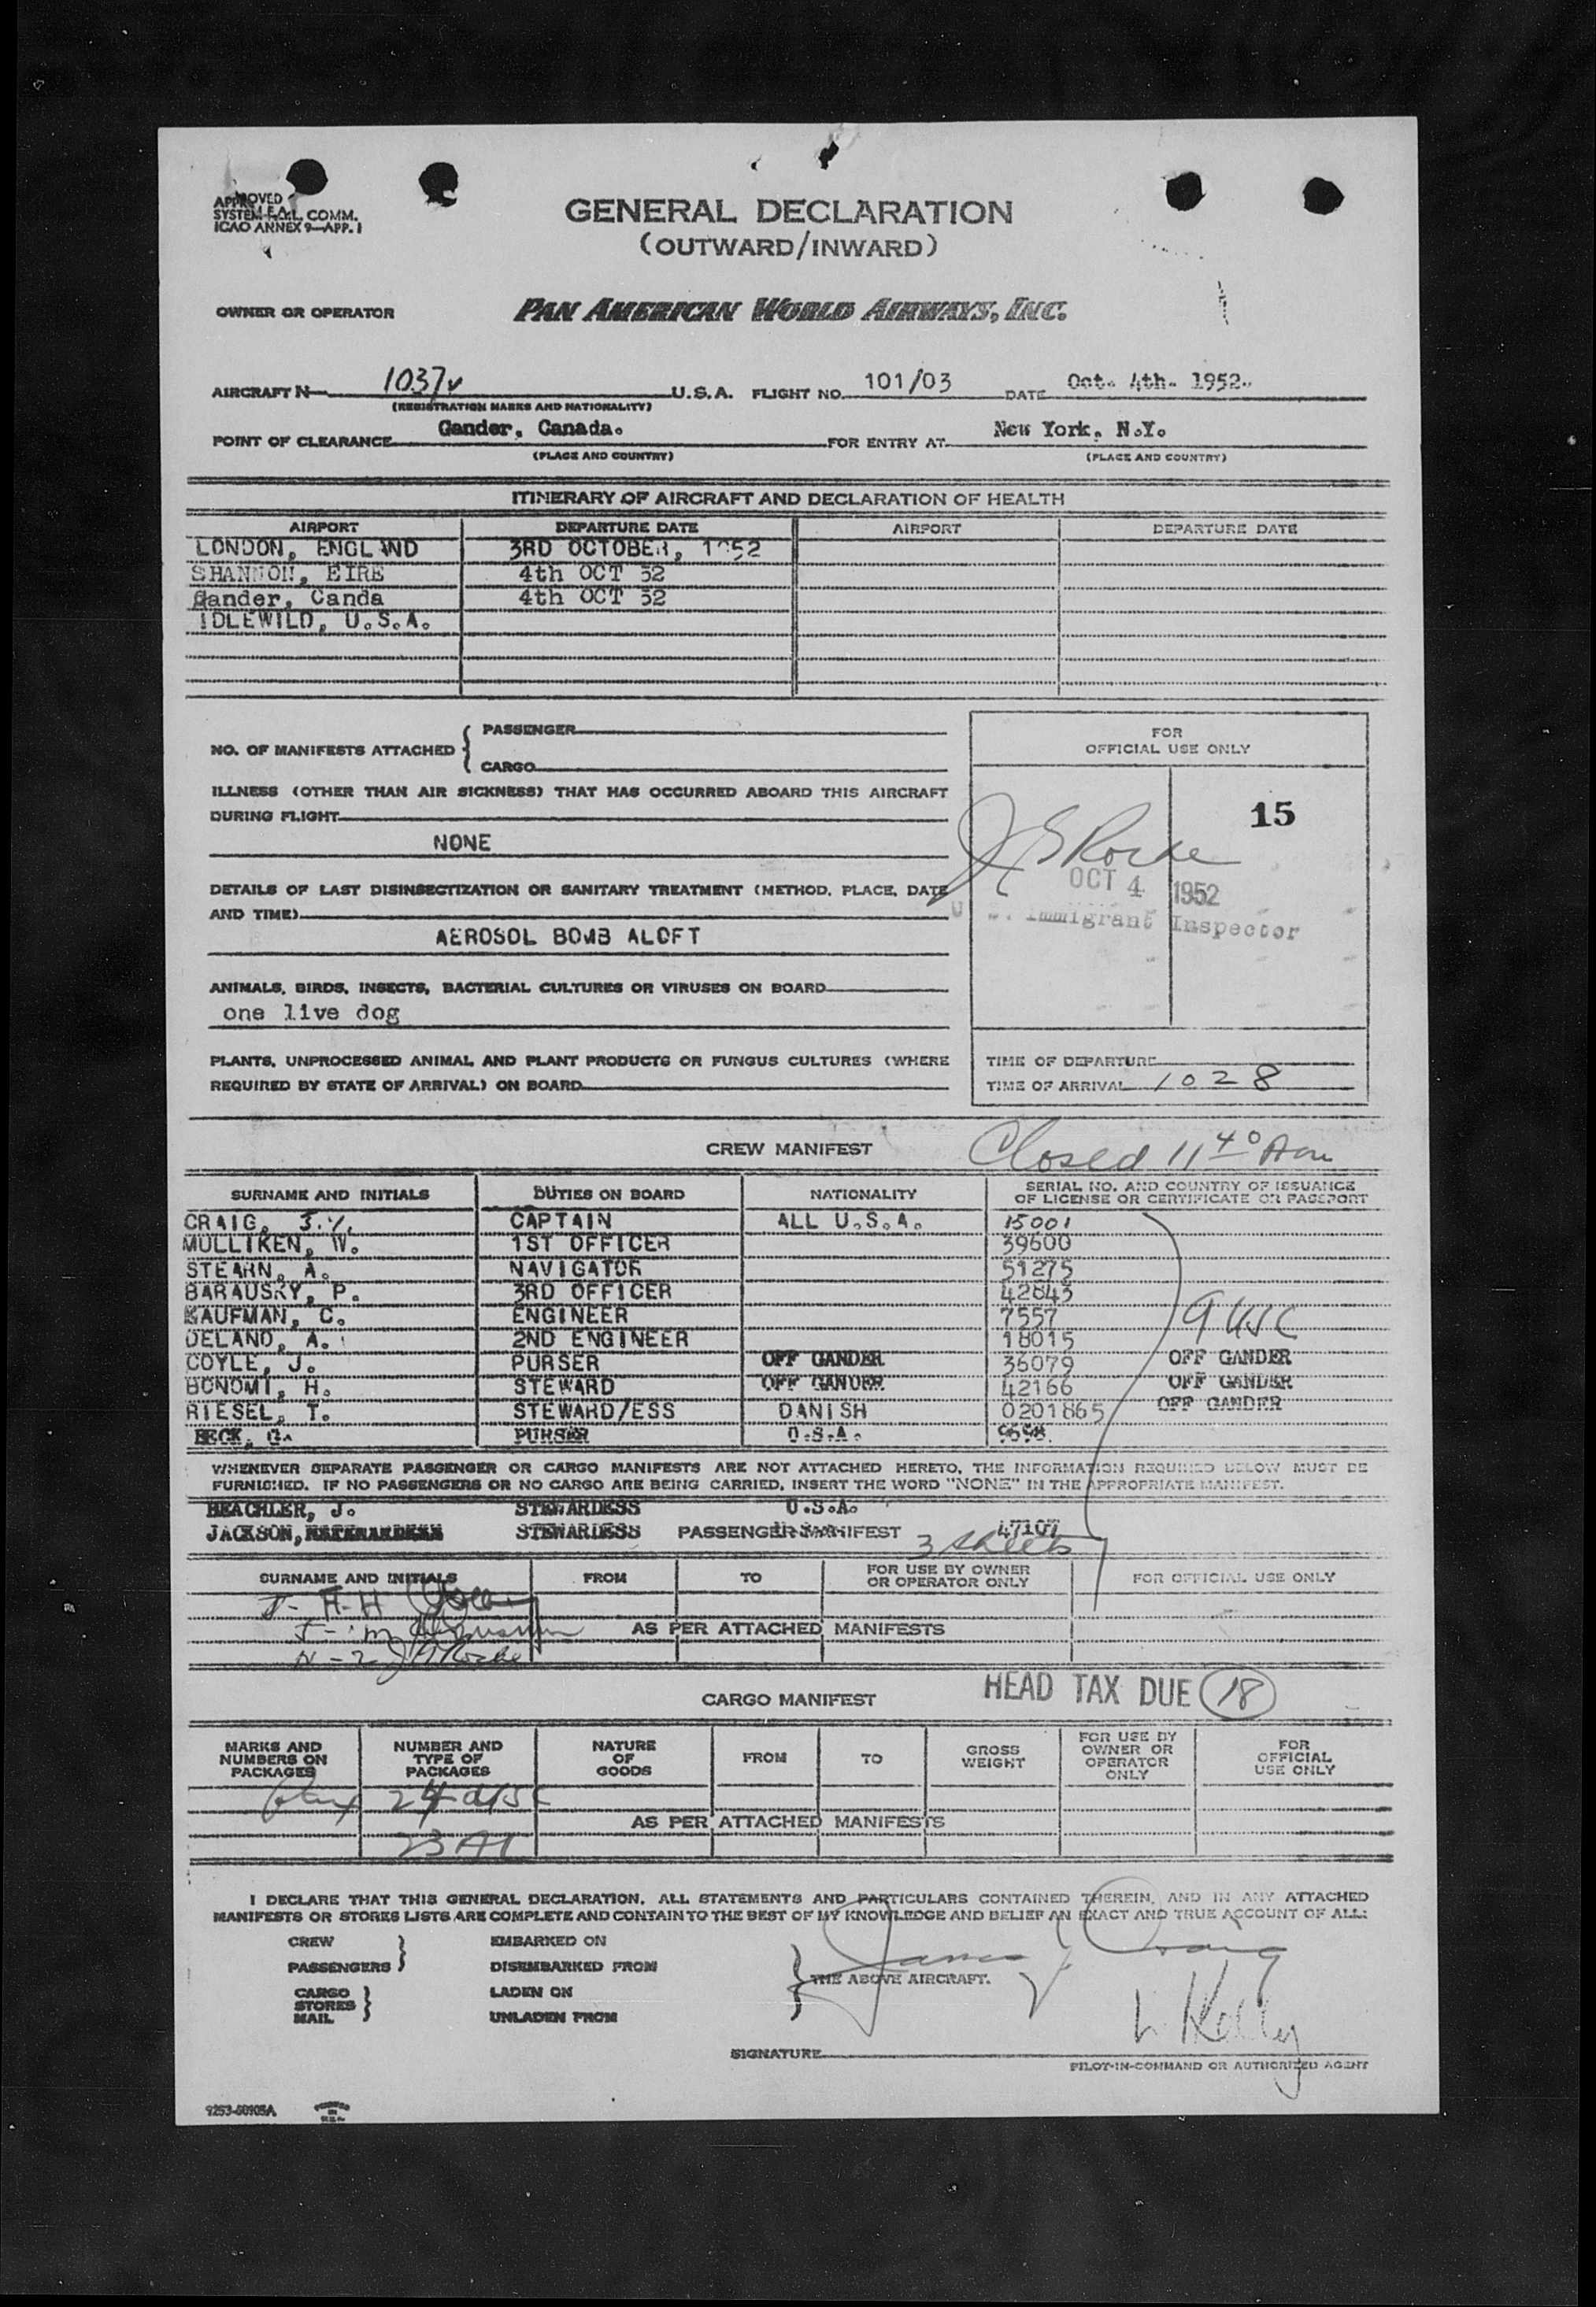 APPROVED
SYSTEM F.A.L. COMM.
ICAO ANNEX 9—APP. 1
GENERAL DECLARATION
(OUTWARD/INWARD)
OWNER OR OPERATOR PAN AMERICAN WORLD AIRWAYS, INC.
AIRCRAFT N 1037v U.S.A. FLIGHT NO. 101/03 DATE Oct. 4th. 1952.
(REGISTRATION MARKS AND NATIONALITY)
POINT OF CLEARANCE Gander, Canada. FOR ENTRY AT New York, N.Y.
(PLACE AND COUNTRY) (PLACE AND COUNTRY)
ITINERARY OF AIRCRAFT AND DECLARATION OF HEALTH
AIRPORT DEPARTURE DATE AIRPORT DEPARTURE DATE
LONDON, ENGLAND 3RD OCTOBER, 1952
SHANNON, EIRE 4th OCT 52
Gander, Canda 4th OCT 52
IDLEWILD, U.S.A.
NO. OF MANIFESTS ATTACHED { PASSENGER
CARGO
FOR
OFFICIAL USE ONLY
ILLNESS (OTHER THAN AIR SICKNESS) THAT HAS OCCURRED ABOARD THIS AIRCRAFT
DURING FLIGHT
15
NONE
DETAILS OF LAST DISINSECTIZATION OR SANITARY TREATMENT (METHOD, PLACE, DATE
AND TIME)
OCT 4 1952
U. S. Immigrant Inspector
AEROSOL BOMB ALOFT
ANIMALS, BIRDS, INSECTS, BACTERIAL CULTURES OR VIRUSES ON BOARD
one live dog
PLANTS, UNPROCESSED ANIMAL AND PLANT PRODUCTS OR FUNGUS CULTURES (WHERE
REQUIRED BY STATE OF ARRIVAL) ON BOARD
TIME OF DEPARTURE
TIME OF ARRIVAL 1028
CREW MANIFEST Closed 11 40 Am
SURNAME AND INITIALS DUTIES ON BOARD NATIONALITY SERIAL NO. AND COUNTRY OF ISSUANCE
OF LICENSE OR CERTIFICATE OR PASSPORT
CRAIG, J. CAPTAIN ALL U.S.A. 15001
MULLIKEN, W. 1ST OFFICER 39600
STEARN, A. NAVIGATOR 51275
BARAUSKY, P. 3RD OFFICER 42843
KAUFMAN, C. ENGINEER 7557 9 USC
DELAND, A. 2ND ENGINEER 18015
COYLE, J. PURSER OFF GANDER 36079 OFF GANDER
BONOMI, H. STEWARD OFF GANDER 42166 OFF GANDER
RIESEL, T. STEWARD/ESS DANISH 0201865 OFF GANDER
BECK, G. PURSER U.S.A. 9598
WHENEVER SEPARATE PASSENGER OR CARGO MANIFESTS ARE NOT ATTACHED HERETO, THE INFORMATION REQUIRED BELOW MUST BE
FURNISHED. IF NO PASSENGERS OR NO CARGO ARE BEING CARRIED, INSERT THE WORD "NONE" IN THE APPROPRIATE MANIFEST.
BEACHLER, J. STEWARDESS U.S.A.
JACKSON, STEWARDESS PASSENGER MANIFEST 47107
3 sheets
SURNAME AND INITIALS FROM TO FOR USE BY OWNER
OR OPERATOR ONLY FOR OFFICIAL USE ONLY
AS PER ATTACHED MANIFESTS
HEAD TAX DUE 18
CARGO MANIFEST
MARKS AND
NUMBERS ON
PACKAGES
NUMBER AND
TYPE OF
PACKAGES
NATURE
OF
GOODS
FROM
TO
GROSS
WEIGHT
FOR USE BY
OWNER OR
OPERATOR
ONLY
FOR
OFFICIAL
USE ONLY
24 USC
AS PER ATTACHED MANIFESTS
I DECLARE THAT THIS GENERAL DECLARATION, ALL STATEMENTS AND PARTICULARS CONTAINED THEREIN, AND IN ANY ATTACHED
MANIFESTS OR STORES LISTS ARE COMPLETE AND CONTAIN TO THE BEST OF MY KNOWLEDGE AND BELIEF AN EXACT AND TRUE ACCOUNT OF ALL:
CREW EMBARKED ON
PASSENGERS } DISEMBARKED FROM
James J Craig
THE ABOVE AIRCRAFT.
CARGO LADEN ON
STORES }
MAIL UNLADEN FROM
L Kelly
SIGNATURE
PILOT-IN-COMMAND OR AUTHORIZED AGENT
9253-50105A